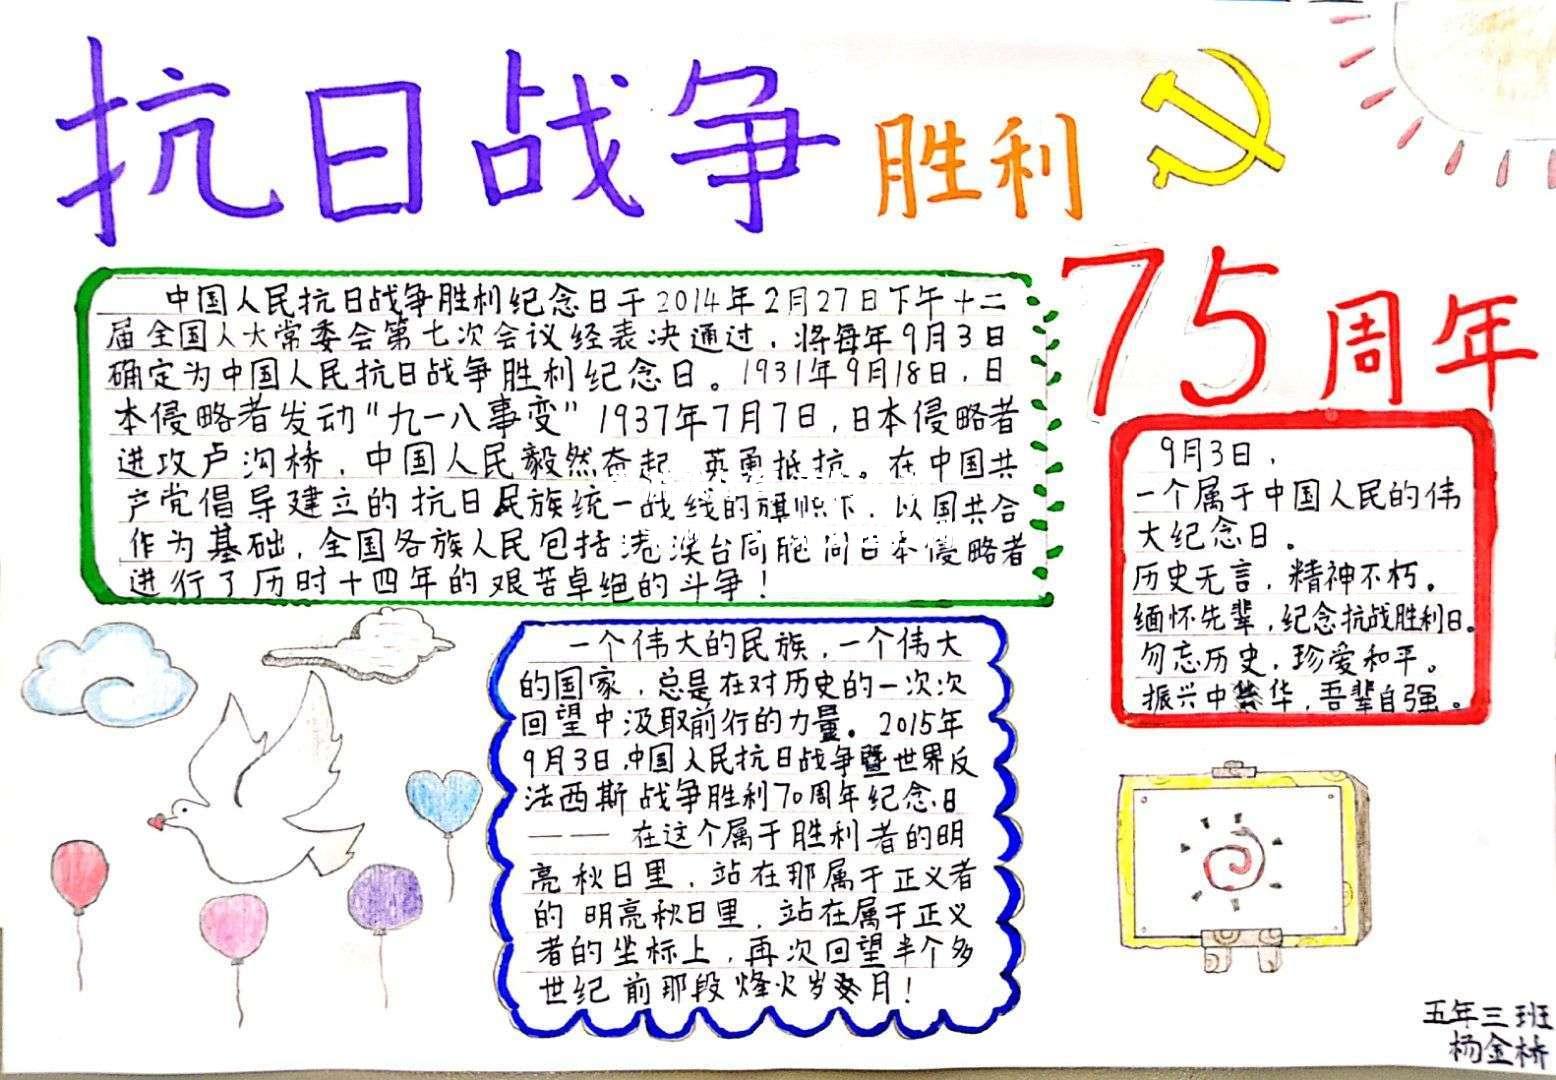 抗日战争胜利
75周年
中国人民抗日战争胜利纪念日于2014年2月27日下午十二
届全国人大常委会第七次会议经表决通过，将每年9月3日
确定为中国人民抗日战争胜利纪念日。1931年9月18日，日
本侵略者发动“九一八事变”1937年7月7日，日本侵略者
进攻卢沟桥，中国人民毅然奋起，英勇抵抗。在中国共
产党倡导建立的抗日民族统一战线的旗帜下，以国共合
作为基础，全国各族人民包括港澳台同胞向日本侵略者
进行了历时十四年的艰苦卓绝的斗争！
9月3日，
一个属于中国人民的伟
大纪念日。
历史无言，精神不朽。
缅怀先辈，纪念抗战胜利日。
勿忘历史，珍爱和平。
振兴中华，吾辈自强。
一个伟大的民族，一个伟大
的国家，总是在对历史的一次次
回望中汲取前行的力量。2015年
9月3日，中国人民抗日战争暨世界反
法西斯战争胜利70周年纪念日
——在这个属于胜利者的明
亮秋日里，站在那属于正义者
的明亮秋日里，站在属于正义
者的坐标上，再次回望半个多
世纪前那段烽火岁月！
五年三班
杨金桥